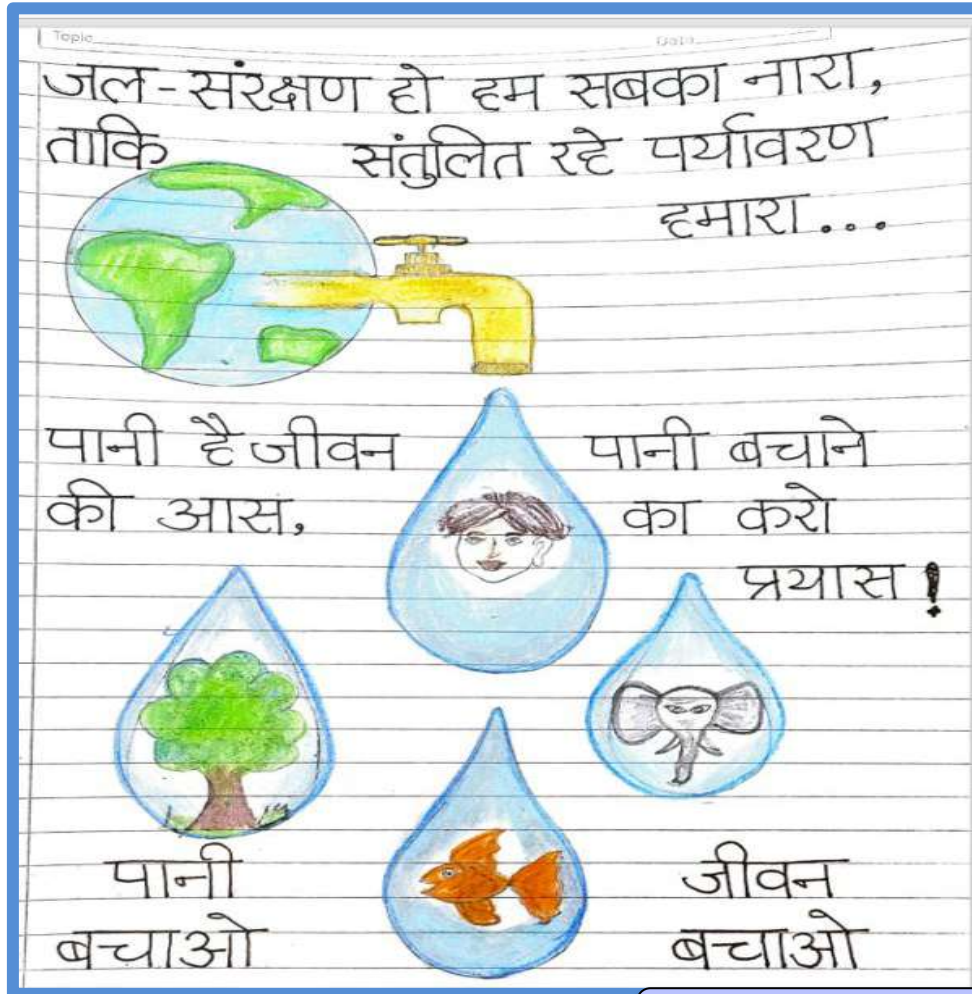 Topic
Date
जल-संरक्षण हो हम सबका नारा,
ताकि संतुलित रहे पर्यावरण
हमारा...
पानी है जीवन
की आस,
पानी बचाने
का करो
प्रयास !
पानी
बचाओ
जीवन
बचाओ